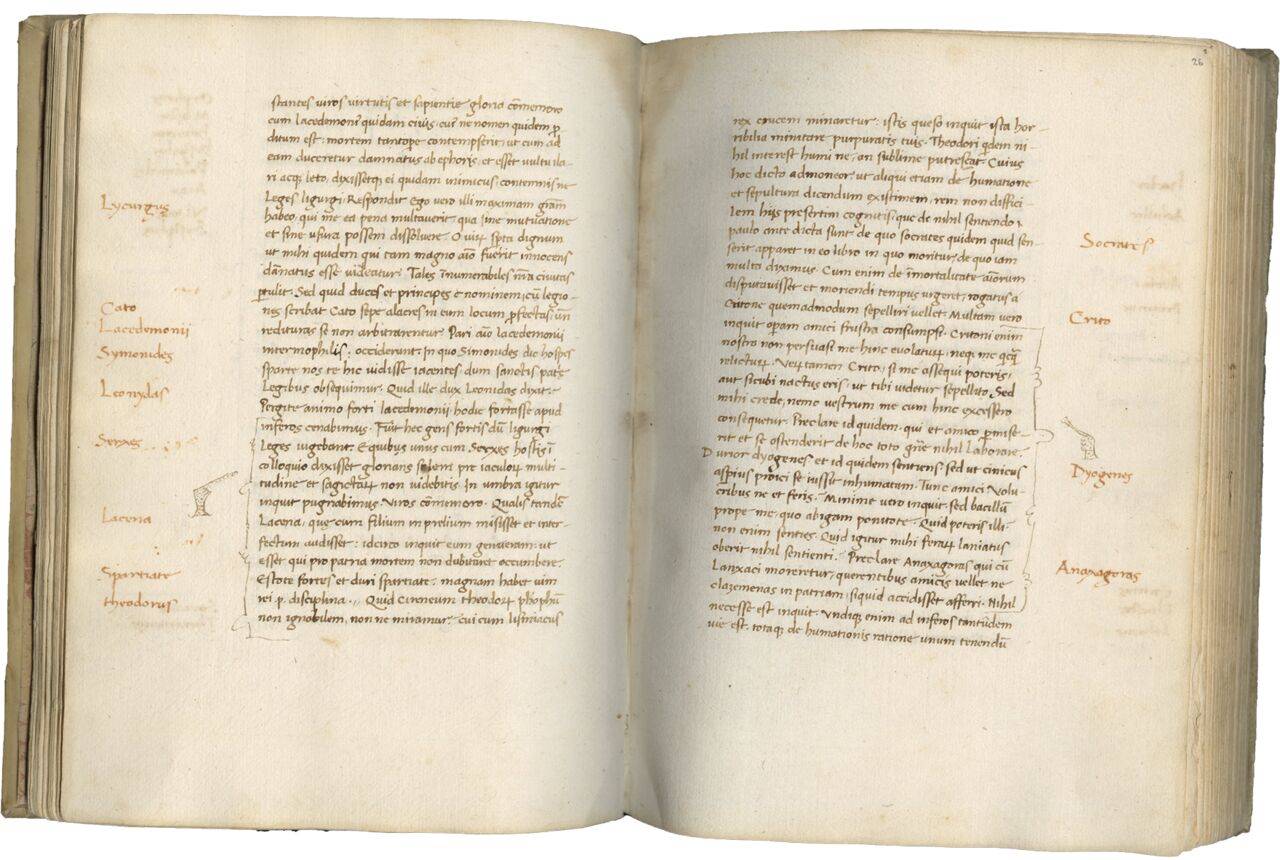 Lycurgus
Cato
Lacedemonii
Symonides
Leonydas
Serxes
Lacena
Spartiate
theodorus
stantes viros virtutis et sapientie gloria cōmemoro
cum lacedemoni⁹ quidam civis, cui⁹ ne nomen quidem p̱
ditum est: mortem tantoꝑe contempserit, ut cum ad
eam duceretur damnatus ab ephoris, et esset vultu ila-
ri acq̨ leto, dixissetq̨ ei quidam inimicus: contemnis ne
Leges ligurgi: Respondit Ego vero illi maximam grām
habeo, qui me ea pena multaverit, qua sine mutuatione
et sine usura possem dissolvere. O virꝝ spta dignum
ut mihi quidem qui tam magno aīo fuerit innocens
dānatus esse videatur. Tales īnumerabiles nr̄a civitas
ꝑtulit. Sed quid duces et principes nominem, cū legio-
nes scribat Cato sepe alacres in eum locum ꝓfectas, un̄
redituras se non arbitrarentur. Pari aīo lacedemonii
intermophilis: occiderunt. In quo Simonides dic hospes
sparte nos te hic vidisse iacentes dum sanctis patᵉ
Legibus obsequimur. Quid ille dux Leonidas dixit.
Pergite animo forti lacedemonii, hodie fortasse apud
inferos cenabimus. Fuīt hec gens fortis dū ligurgi
Leges vigebant. E quibus unus cum Serxes hostis ī
colloquio dixisset glorians solem pre iaculoꝝ multi-
tudine et sagictaꝝ non videbitis. In umbra igitur
inquit pugnabimus. Viros cōmemoro. Qualis tandē
Lacena, que cum filium in prelium misisset et inter-
fectum audisset: idcirco inquit eum genueram: ut
esset qui pro patria mortem non dubitaret occumbere.
Estote fortes et duri spartiate: magnam habet vim
rei .p. disciplina. Quid Cireneum theodoꝝ phophū
non ignobilem, non ne miramur: cui cum lisimacus
26
rex crucem minaretur: istis queso inquit ista hor-
ribilia minitare purpuratis tuis. Theodori qdem ni-
hil interest humi ne, an sublime putrescat. Cuius
hoc dicto admoneor, ut aliqui etiam de humatione
et sepultura dicendum existimem, rem non diffici-
lem hijs presertim cognitis, que de nihil sentiendo
paulo ante dicta sunt: de quo socrates quidem quid sen-
serit apparet in eo libro in quo moritur, de quo iam
multa diximus. Cum enim de īmortalitate aīorum
disputavisset et moriendi tempus urgeret, rogatus a
Critone quemadmodum sepelliri vellet. Multam vero
inquit operam amici frustra consumpsi. Critoni enim
nostro non persuasi me hinc evolaturꝝ, neqi me qcq̄
relicturꝝ. Verꝝtamen Crito, si me assequi poteris,
aut sicubi nactus eris, ut tibi videtur sepellito. Sed
mihi crede, nemo vestrum me cum hinc excessero
consequetur. Preclare id quidem, qui et amico ꝑmise-
rit et se ostenderit de hoc toto gn̄e nihil laborare.
Durior dyogenes et id quidem sentiens sed ut cinicus
aspius proici se iussit inhumatum. Tunc amici Volu-
cribus ne et feris. Minime vero inquit, sed bacillū
prope me, quo abigam ponitote. Quid poteris illi.
non enim senties. Quid igitur mihi feraꝝ laniatus
oberit nihil sentienti. Preclare Anaxagoras qui cū
Lanxaci moreretur, querentibus amicis, vellet ne
clazemenas in patriam, siquid accidisset afferri. Nihil
necesse est inquit. Undiq̨ enim ad inferos tantūdem
vie est. totaq̨ de humationis ratione unum tenendū
Socrates
Crito
Dyogenes
Anaxagoras